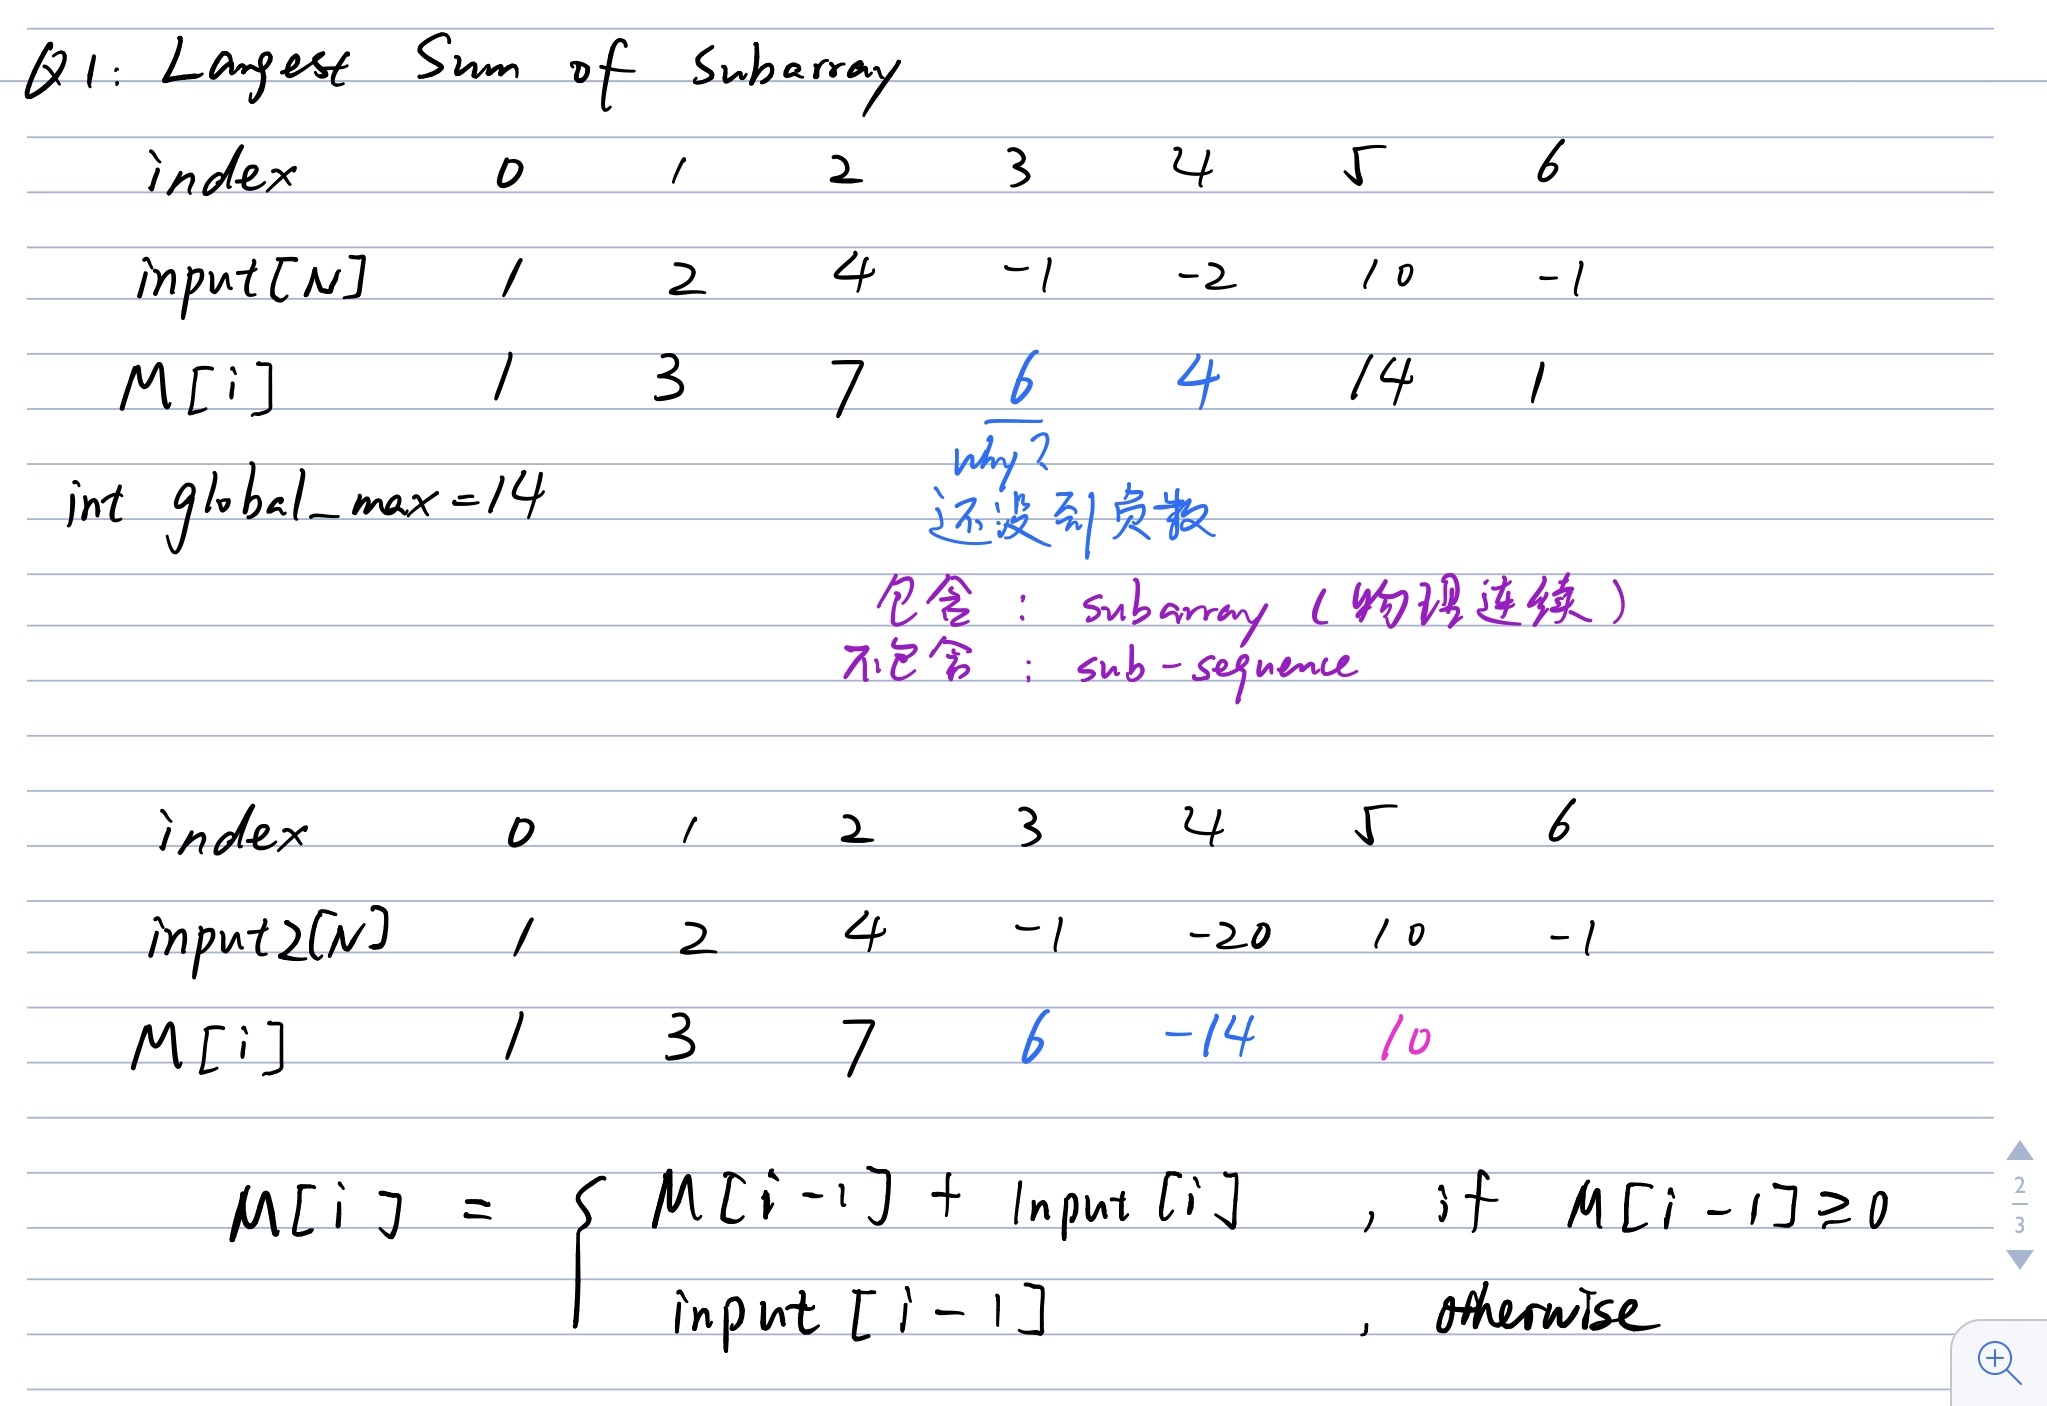 Q1: Largest Sum of Subarray
index 0 1 2 3 4 5 6
input[N] 1 2 4 -1 -2 10 -1
M[i] 1 3 7 6 4 14 1
why?
int global_max=14
还没到负数
包含 : subarray (物理连续)
不包含 : sub-sequence
index 0 1 2 3 4 5 6
input2[N] 1 2 4 -1 -20 10 -1
M[i] 1 3 7 6 -14 10
M[i] = { M[i-1] + Input[i] , if M[i-1]≥0
input[i-1] , otherwise
2
3